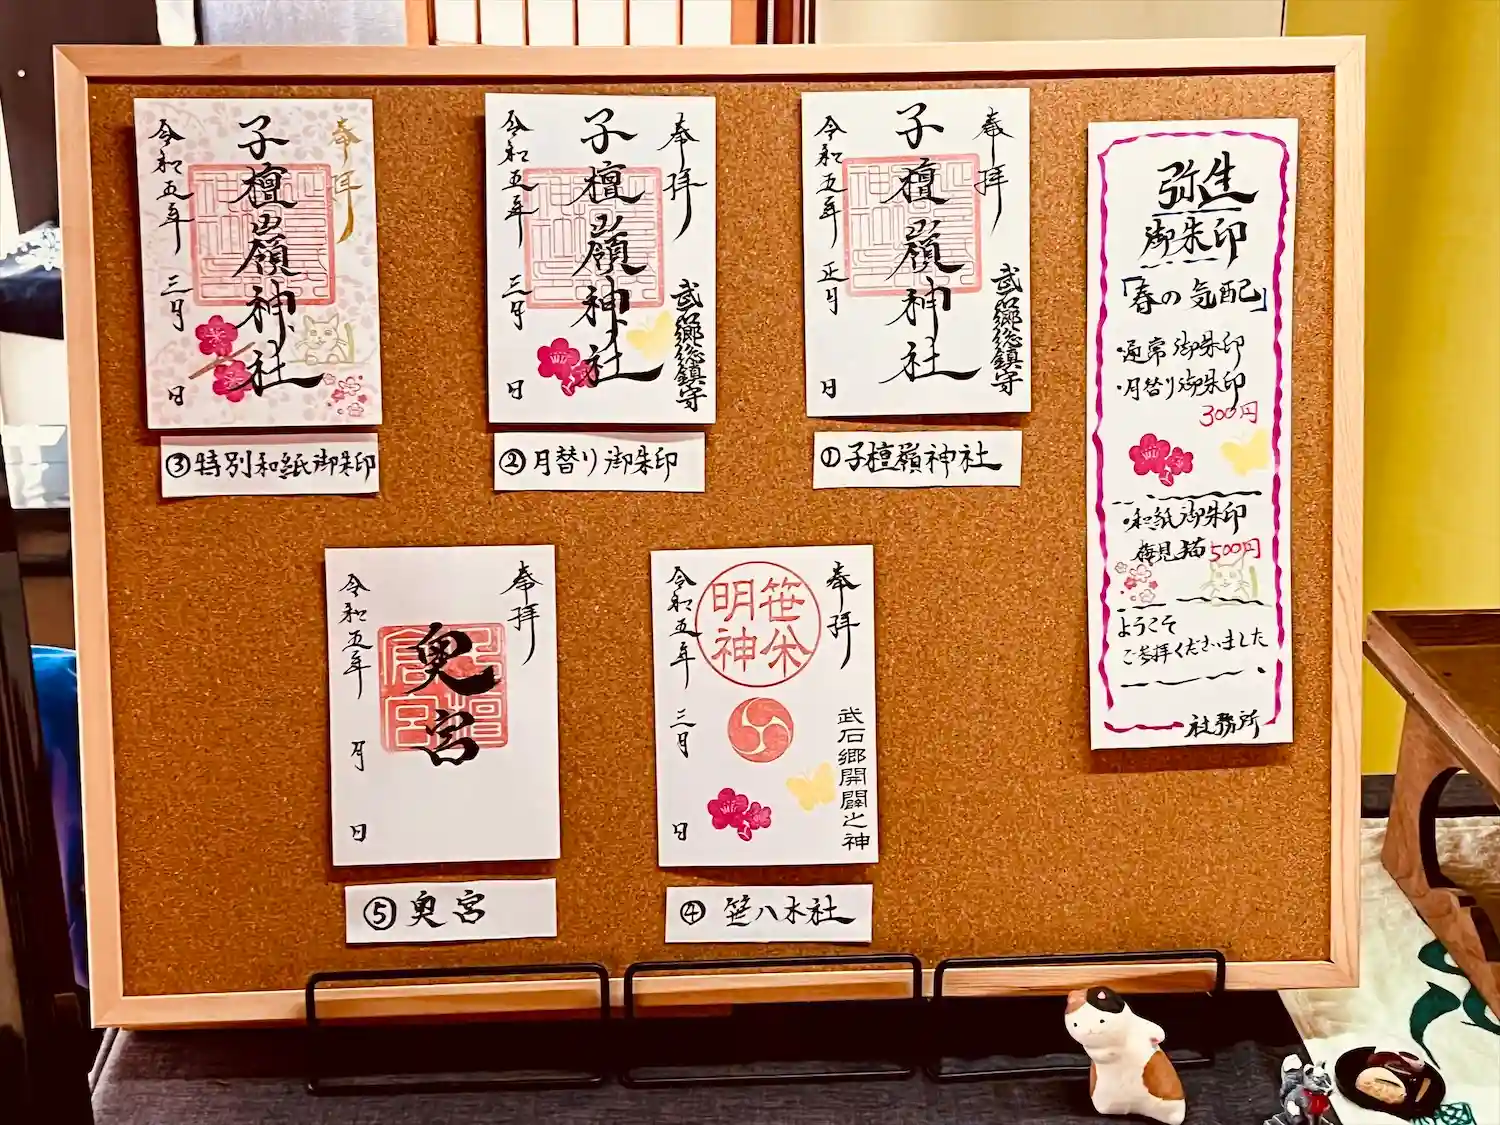 奉拝
子檀嶺神社
令和五年
三月
日
③特別和紙御朱印
奉拝
武石郷総鎮守
子檀嶺神社
令和五年
三月
日
②月替り御朱印
奉拝
武石郷総鎮守
子檀嶺神社
令和五年
正月
日
①子檀嶺神社
弥生
御朱印
「春の気配」
・通常御朱印
・月替り御朱印
300円
・和紙御朱印
梅見猫500円
ようこそ
ご参拝くださいました
社務所
奉拝
奥宮
令和五年
月
日
⑤奥宮
奉拝
笹焼
明神
武石郷開闢之神
令和五年
三月
日
④笹八木社